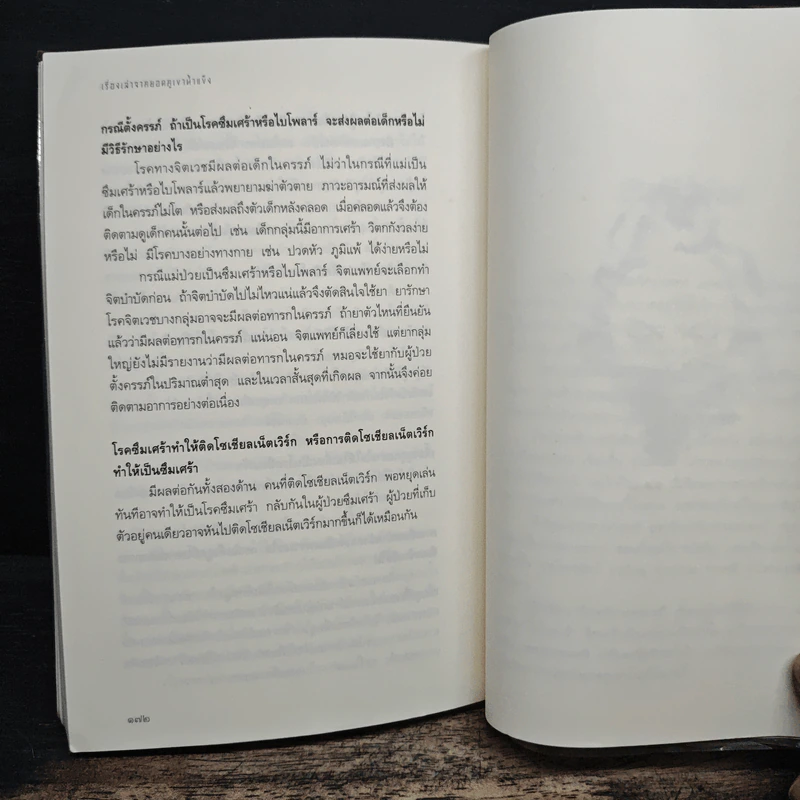 เรื่องเล่าจากยอดภูเขาน้ำแข็ง
กรณีตั้งครรภ์ ถ้าเป็นโรคซึมเศร้าหรือไบโพลาร์ จะส่งผลต่อเด็กหรือไม่
มีวิธีรักษาอย่างไร
โรคทางจิตเวชมีผลต่อเด็กในครรภ์ ไม่ว่าในกรณีที่แม่เป็น
ซึมเศร้าหรือไบโพลาร์แล้วพยายามฆ่าตัวตาย ภาวะอารมณ์ที่ส่งผลให้
เด็กในครรภ์ไม่โต หรือส่งผลถึงตัวเด็กหลังคลอด เมื่อคลอดแล้วจึงต้อง
ติดตามดูเด็กคนนั้นต่อไป เช่น เด็กกลุ่มนี้มีอาการเศร้า วิตกกังวลง่าย
หรือไม่ มีโรคบางอย่างทางกาย เช่น ปวดหัว ภูมิแพ้ ได้ง่ายหรือไม่
กรณีแม่ป่วยเป็นซึมเศร้าหรือไบโพลาร์ จิตแพทย์จะเลือกทำ
จิตบำบัดก่อน ถ้าจิตบำบัดไปไม่ไหวแน่แล้วจึงตัดสินใจใช้ยา ยารักษา
โรคจิตเวชบางกลุ่มอาจจะมีผลต่อทารกในครรภ์ ถ้ายาตัวไหนที่ยืนยัน
แล้วว่ามีผลต่อทารกในครรภ์ แน่นอน จิตแพทย์ก็เลี่ยงใช้ แต่ยากลุ่ม
ใหญ่ยังไม่มีรายงานว่ามีผลต่อทารกในครรภ์ หมอจะใช้ยากับผู้ป่วย
ตั้งครรภ์ในปริมาณต่ำสุด และในเวลาสั้นสุดที่เกิดผล จากนั้นจึงค่อย
ติดตามอาการอย่างต่อเนื่อง
โรคซึมเศร้าทำให้ติดโซเชียลเน็ตเวิร์ก หรือการติดโซเชียลเน็ตเวิร์ก
ทำให้เป็นซึมเศร้า
มีผลต่อกันทั้งสองด้าน คนที่ติดโซเชียลเน็ตเวิร์ก พอหยุดเล่น
ทันทีอาจทำให้เป็นโรคซึมเศร้า กลับกันในผู้ป่วยซึมเศร้า ผู้ป่วยที่เก็บ
ตัวอยู่คนเดียวอาจหันไปติดโซเชียลเน็ตเวิร์กมากขึ้นก็ได้เหมือนกัน
๑๗๒